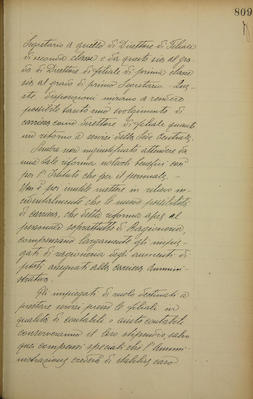 809
Segretario a quello di Direttore di Filiale
di seconda classe e da questo sia al gra-
do di Direttore di filiale di prima classe
sia al grado di primo Segretario. Que-
ste disposizioni mirano a rendere
possibile tanto uno svolgimento di
carriera come Direttore di filiale quanto
un ritorno a servizi della Sede Centrale.
Sembra non ingiustificato attendere da
una tale riforma notevoli benefici sia
per l'Istituto che per il personale.
Non è poi inutile mettere in rilievo in-
cidentalmente che le nuove possibilità
di carriera, che dalla riforma al
personale soprattutto di Ragioneria,
compensano largamente gli impie-
gati di ragioneria degli aumenti di
posti assegnati alla carriera Ammini-
strativa.
Gli impiegati di ruolo destinati a
prestare servizi presso le filiali in
qualità di contabili o aiuto contabili
conserveranno il loro stipendio, salvo
quei compensi speciali che l'Ammi-
nistrazione crederà di stabilire caso